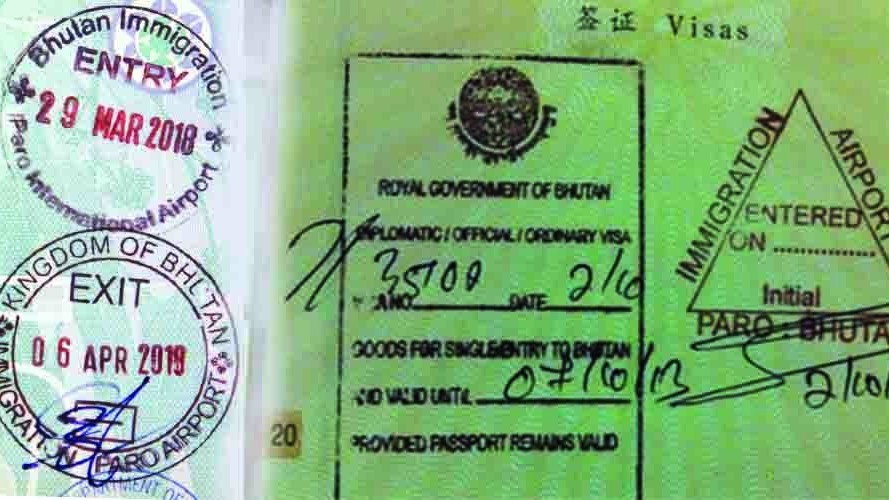 Bhutan Immigration
ENTRY
29 MAR 2018
Paro International Airport
KINGDOM OF BHUTAN
EXIT
06 APR 2019
IMMIGRATION PARO AIRPORT
DEPARTMENT OF
签证 Visas
ROYAL GOVERNMENT OF BHUTAN
DIPLOMATIC / OFFICIAL / ORDINARY VISA
DATE 2/10
GOODS FOR SINGLE ENTRY TO BHUTAN
VALID UNTIL 07/10/13
PROVIDED PASSPORT REMAINS VALID
20
IMMIGRATION
AIRPORT
ENTERED
ON ..............
Initial
PARO BHUTA
2/10/